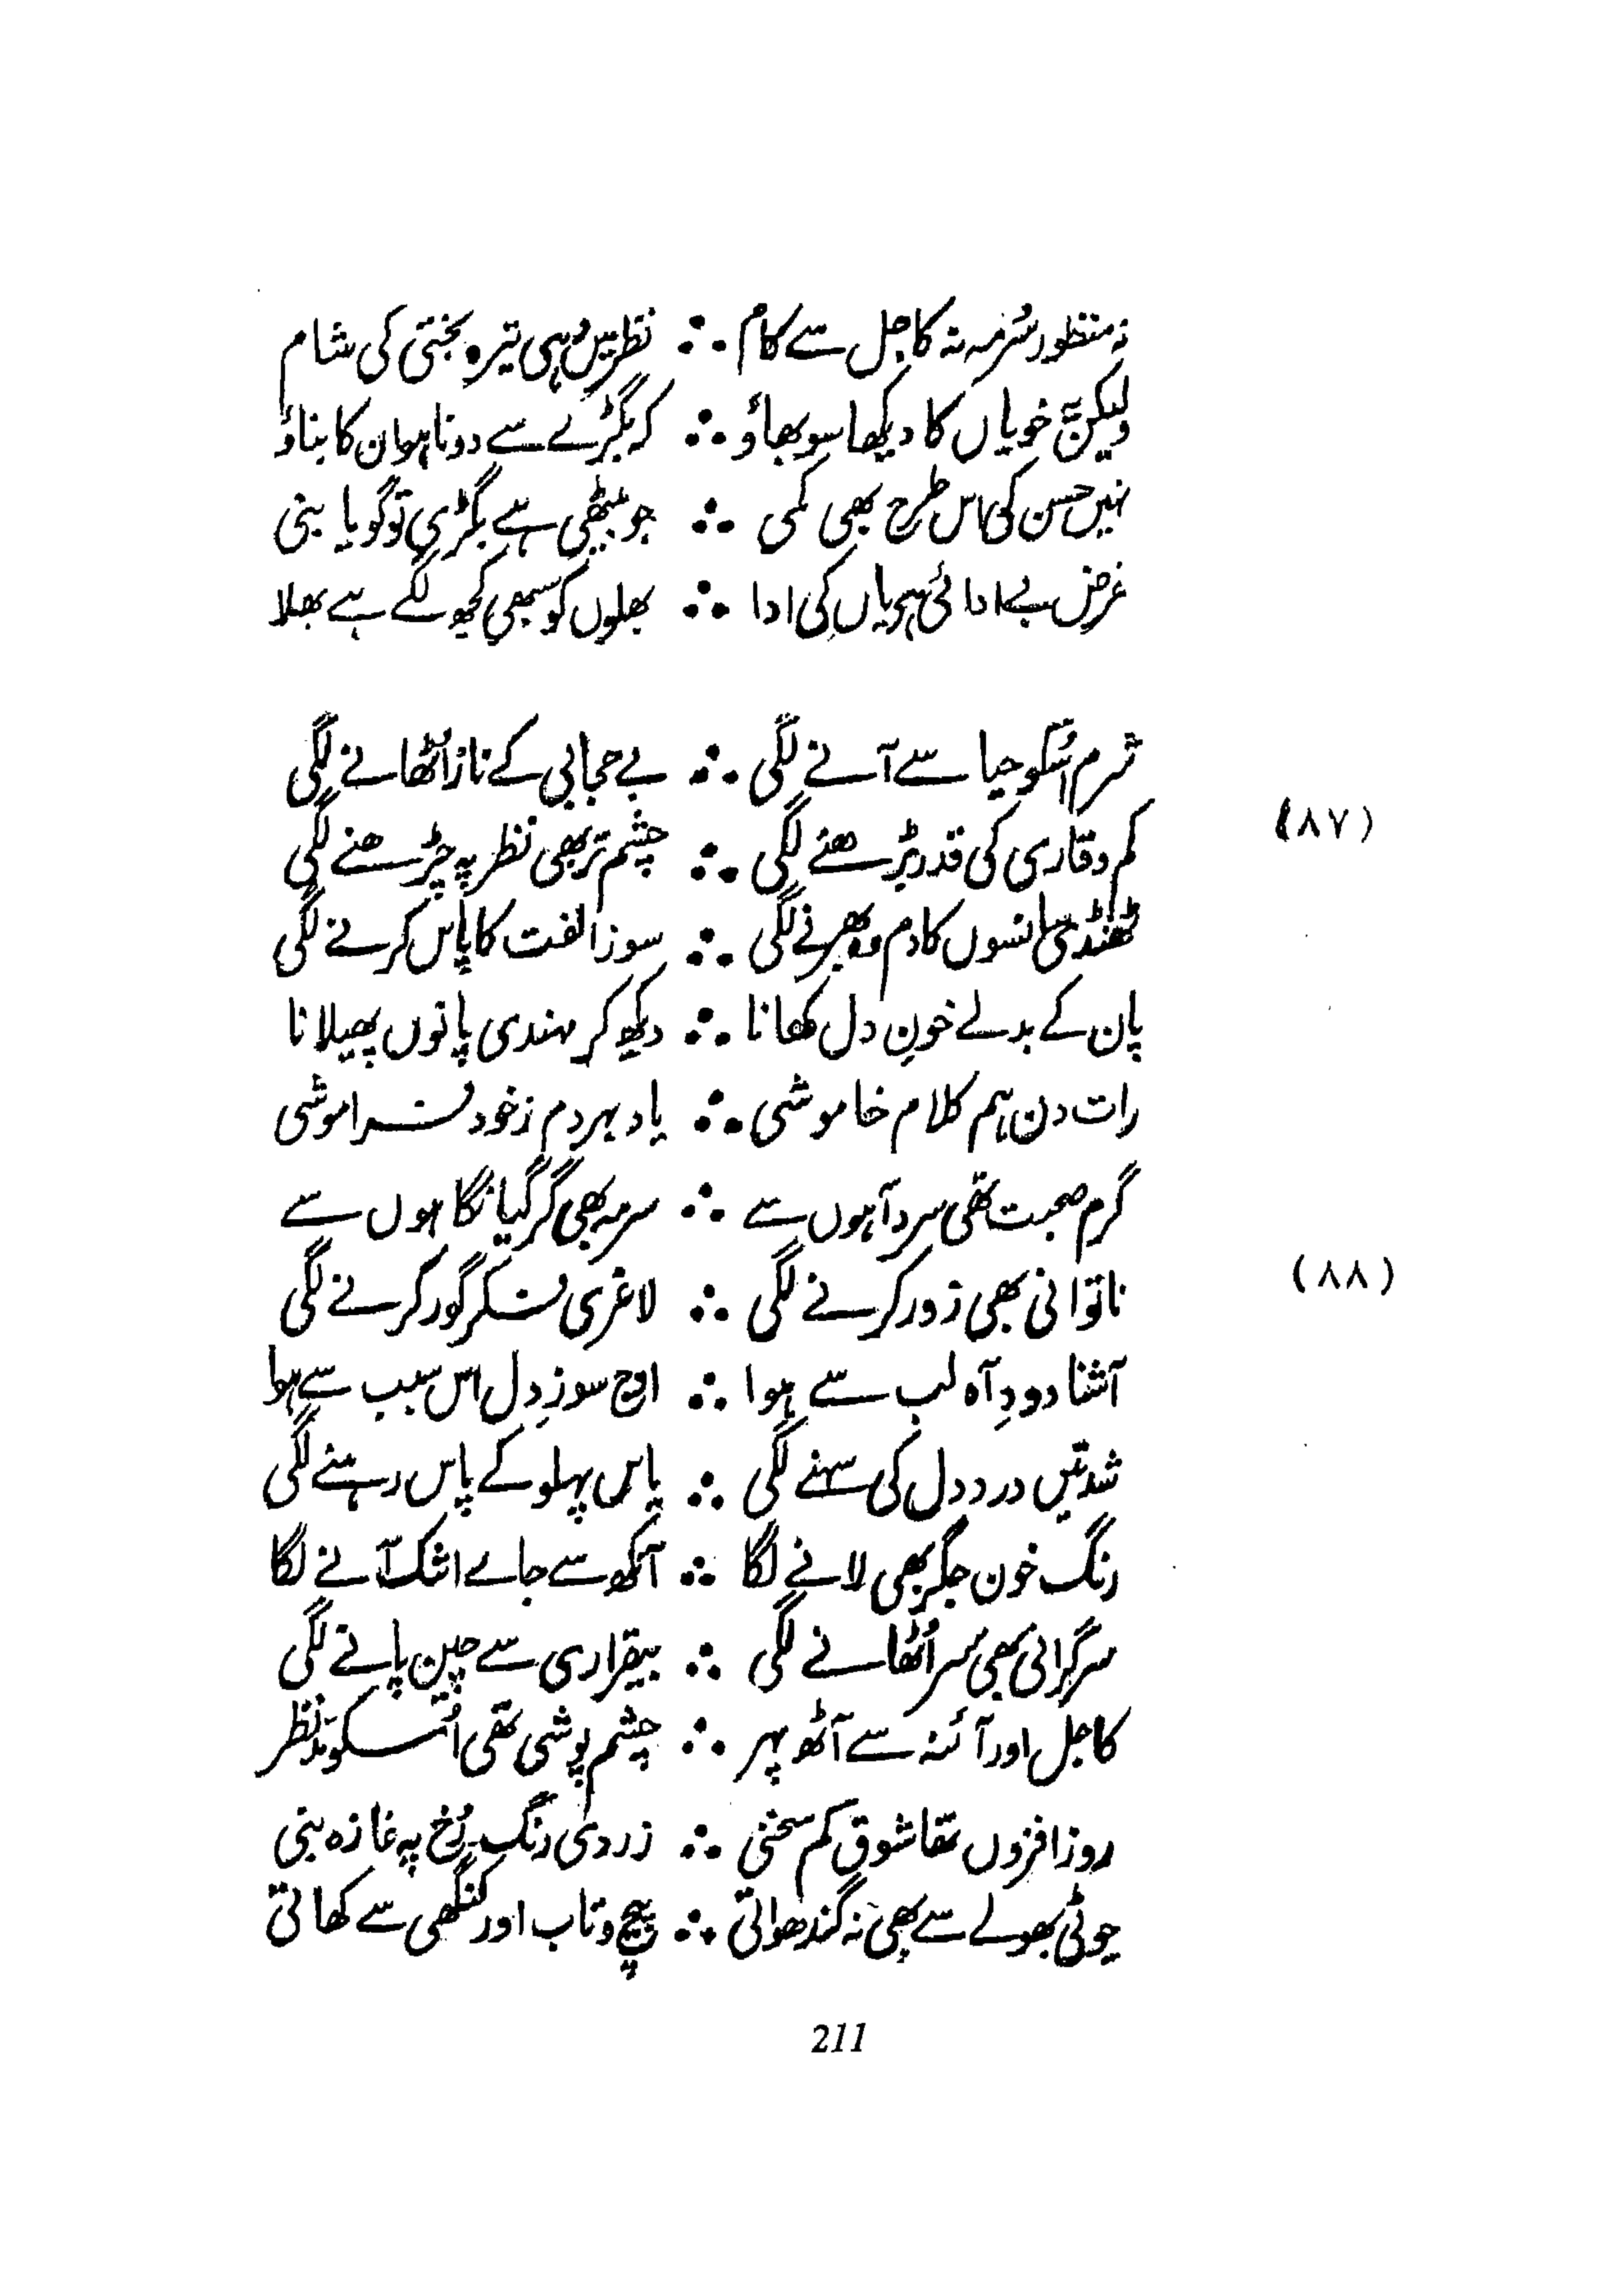 نہ منظور سُرمہ نہ کاجل سے کام ∴ نظر میں وُہی تیرہ بختی کی شام
ولیکن یہ خوباں کا دیکھا سوبھاؤ ∴ کہ بگڑے سے دونا ہو ان کا بناؤ
نہیں حسن کی اس طرح بھی کمی ∴ جو بیٹھی ہے بگڑی تو گویا بنی
غرض بے ادائی ہی یاں کی ادا ∴ بھلوں کو سبھی کچھ لگے ہے بھلا
شرم اسکو حیا سے آنے لگی ∴ بے حجابی کے ناز اُٹھانے لگی
(۸۷)
کم وقاری کی قدر بڑھنے لگی ∴ چشم تر بھی نظر پہ چڑھنے لگی
ٹھنڈی سانسوں کا دم وہ بھرنے لگی ∴ سوز الفت کا پاس کرنے لگی
پان کے بدلے خونِ دل کھانا ∴ دیکھ کر مہندی پانوں پھیلانا
رات دن ہم کلام خاموشی ∴ یاد ہر دم ز خود فراموشی
گرم صحبت تھی سرد آہوں سے ∴ سرمہ بھی گر گیا نگاہوں سے
(۸۸)
ناتوانی بھی زور کرنے لگی ∴ لاغری فکر گور کرنے لگی
آشنا دودِ آہ لب سے ہوا ∴ اوج سوزِ دل اس سبب سے ہوا
شدتیں درد دل کی سہنے لگی ∴ یاس پہلو کے پاس رہنے لگی
رنگ خون جگر بھی لانے لگا ∴ آنکھ سے جاے اشک آنے لگا
سرگرانی بھی سر اُٹھانے لگی ∴ بیقراری سے چین پانے لگی
کاجل اور آئنہ سے آٹھ پہر ∴ چشم پوشی تھی اُسکو مدّنظر
روز افزوں تھا شوق کم سخنی ∴ زردی رنگ رُخ پہ غازہ بنی
چوٹی بھولے سے بھی نہ گندھواتی ∴ پیچ و تاب اور کنگھی سے کھاتی
211